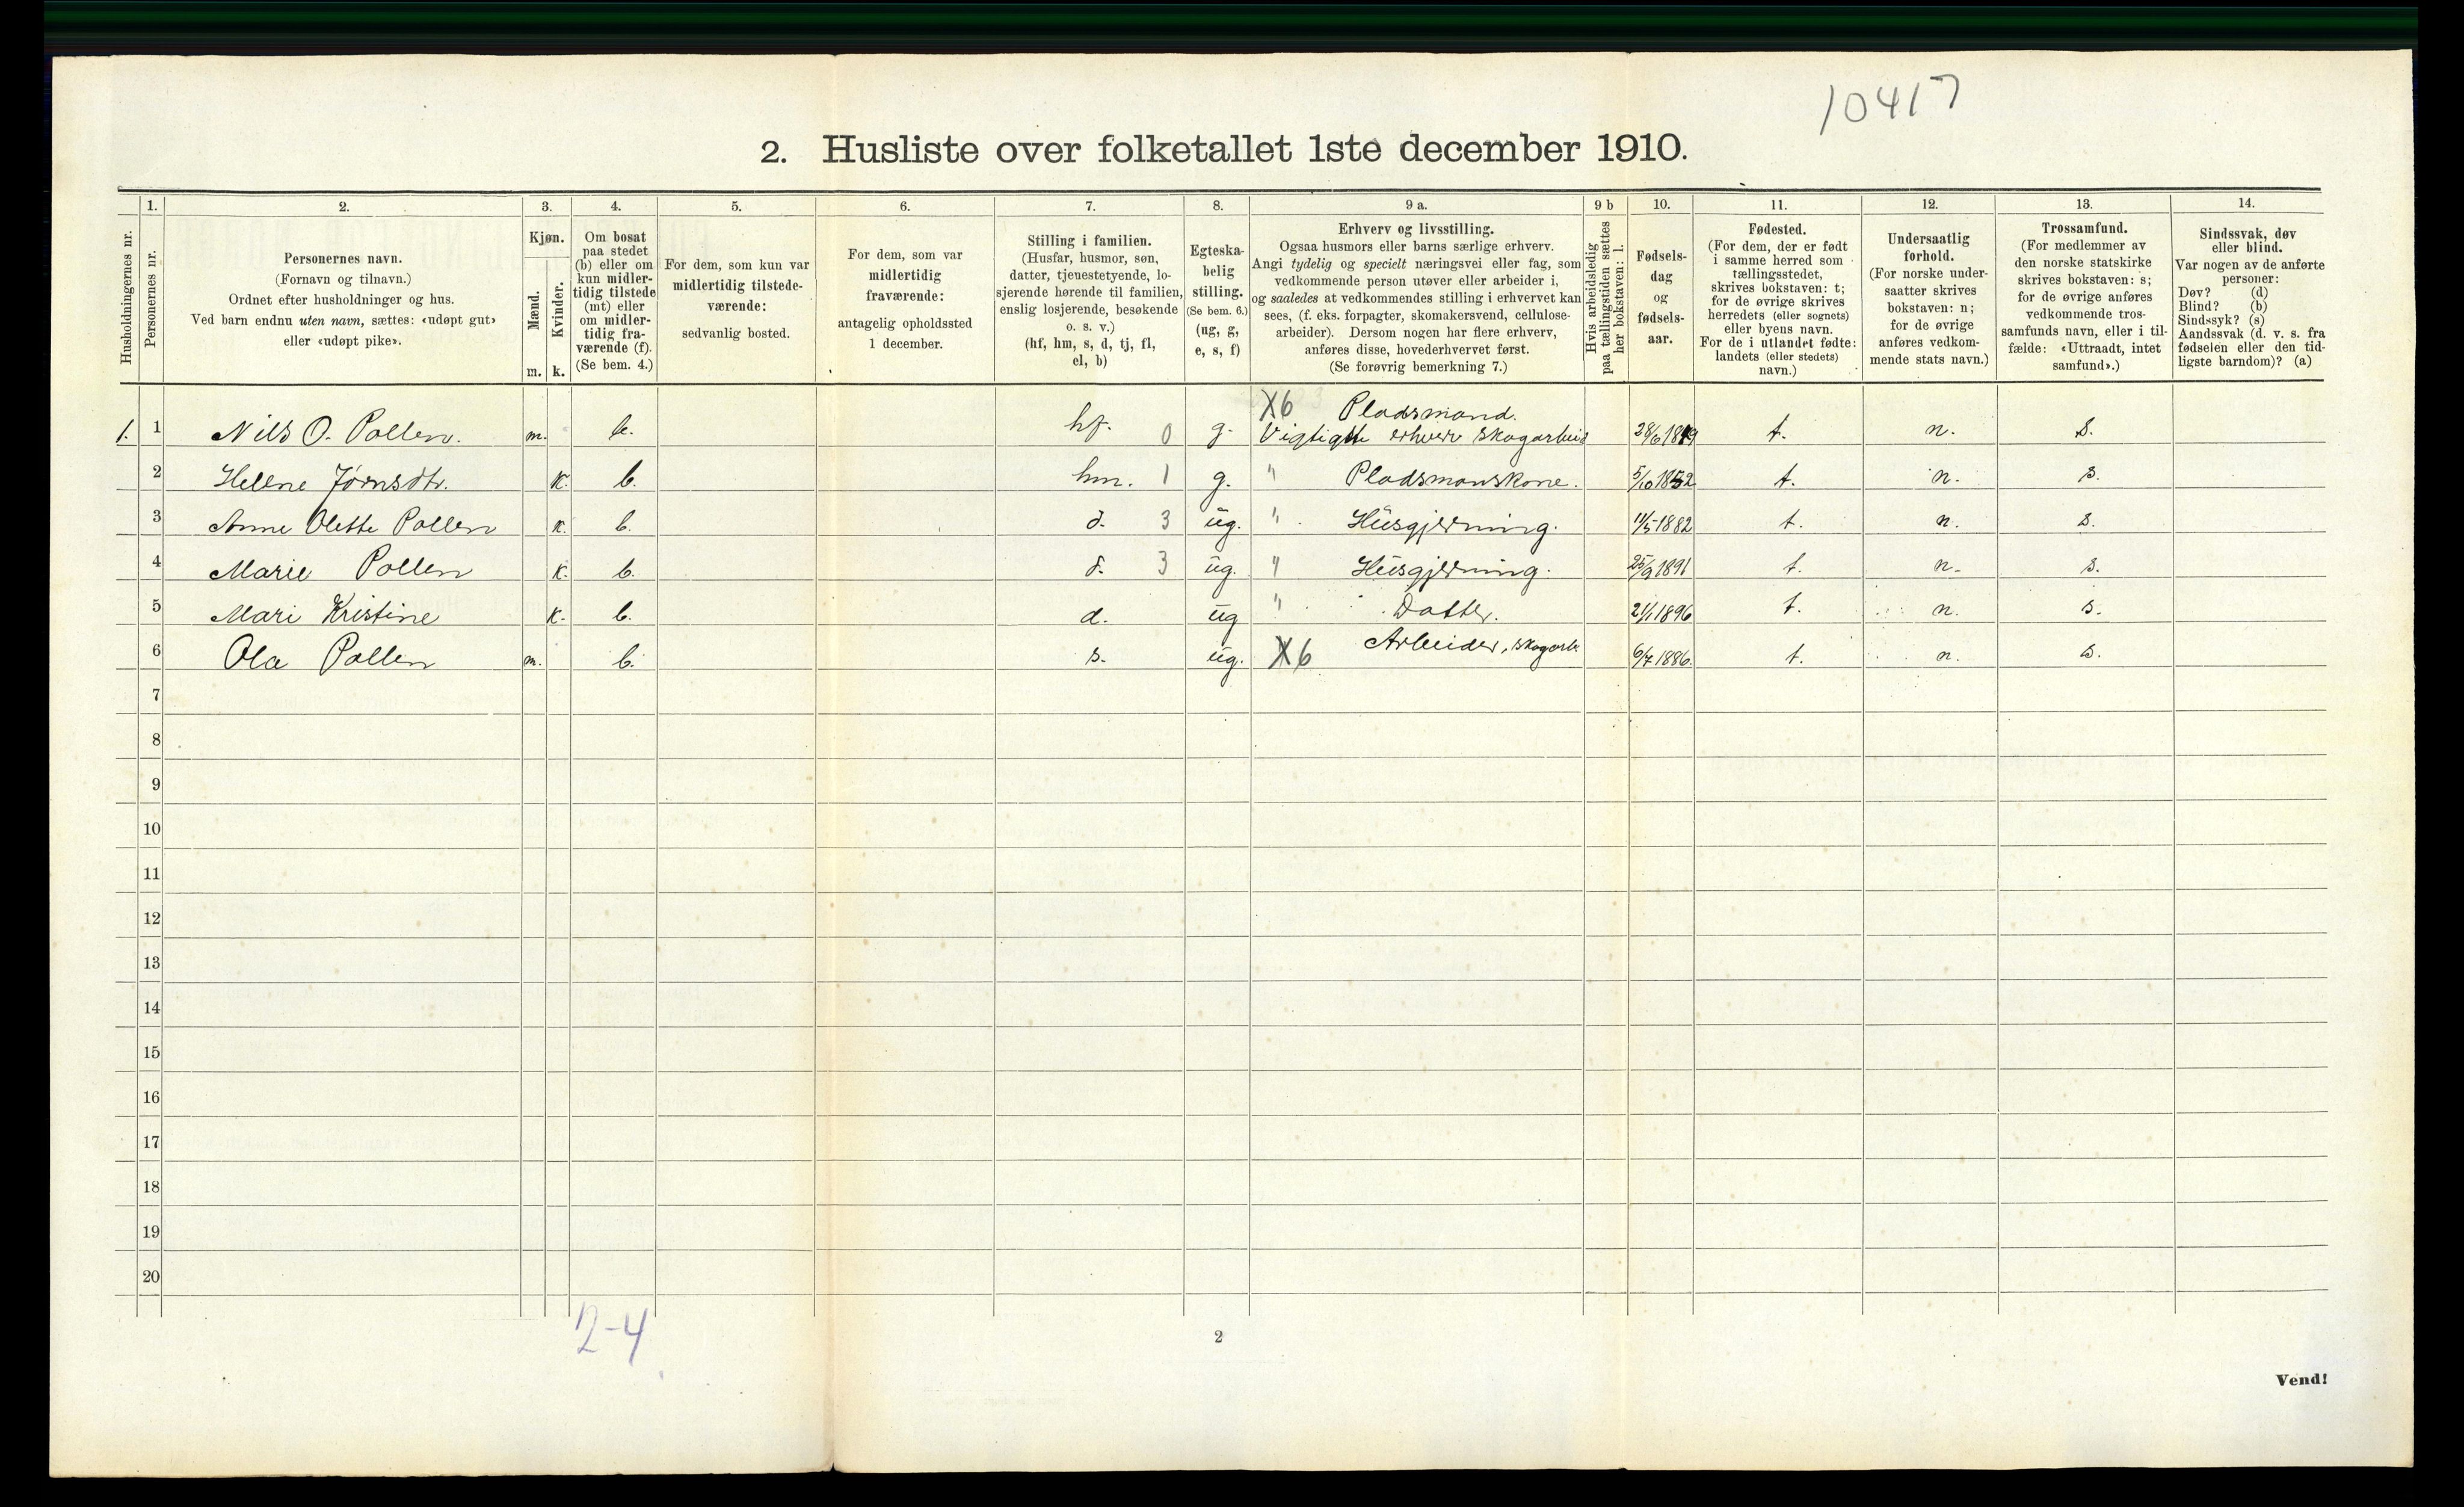 10417
2. Husliste over folketallet 1ste december 1910.
Husholdningernes nr.
1.
Personernes nr.
2.
Personernes navn.
(Fornavn og tilnavn.)
Ordnet efter husholdninger og hus.
Ved barn endnu uten navn, sættes: «udøpt gut»
eller «udøpt pike».
3.
Kjøn.
Mænd.
Kvinder.
m. k.
4.
Om bosat
paa stedet
(b) eller om
kun midler-
tidig tilstede
(mt) eller
om midler-
tidig fra-
værende (f).
(Se bem. 4.)
5.
For dem, som kun var
midlertidig tilstede-
værende:
sedvanlig bosted.
6.
For dem, som var
midlertidig
fraværende:
antagelig opholdssted
1 december.
7.
Stilling i familien.
(Husfar, husmor, søn,
datter, tjenestetyende, lo-
sjerende hørende til familien,
enslig losjerende, besøkende
o. s. v.)
(hf, hm, s, d, tj, fl,
el, b)
8.
Egteska-
belig
stilling.
(Se bem. 6.)
(ug, g,
e, s, f)
9 a.
Erhverv og livsstilling.
Ogsaa husmors eller barns særlige erhverv.
Angi tydelig og specielt næringsvei eller fag, som
vedkommende person utøver eller arbeider i,
og saaledes at vedkommendes stilling i erhvervet kan
sees, (f. eks. forpagter, skomakersvend, cellulose-
arbeider). Dersom nogen har flere erhverv,
anføres disse, hovederhvervet først.
(Se forøvrig bemerkning 7.)
9 b
Hvis arbeidsledig
paa tællingstiden sættes
her bokstaven: l.
10.
Fødsels-
dag
og
fødsels-
aar.
11.
Fødested.
(For dem, der er født
i samme herred som
tællingsstedet,
skrives bokstaven: t;
for de øvrige skrives
herredets (eller sognets)
eller byens navn.
For de i utlandet fødte:
landets (eller stedets)
navn.)
12.
Undersaatlig
forhold.
(For norske under-
saatter skrives
bokstaven: n;
for de øvrige
anføres vedkom-
mende stats navn.)
13.
Trossamfund.
(For medlemmer av
den norske statskirke
skrives bokstaven: s;
for de øvrige anføres
vedkommende tros-
samfunds navn, eller i til-
fælde: «Uttraadt, intet
samfund».)
14.
Sindssvak, døv
eller blind.
Var nogen av de anførte
personer:
Døv? (d)
Blind? (b)
Sindssyk? (s)
Aandssvak (d. v. s. fra
fødselen eller den tid-
ligste barndom)? (a)
X6 Pladsmand.
1. 1 Nils O. Pollen. m. b. hf. 0 g. Vigtigste erhverv skogarbeid 28/6 1849 t. n. s.
2 Helene Jörnsdtr. K. b. hm. 1 g. " Pladsmanskone. 5/10 1852 t. n. s.
3 Anne Olette Pollen K. b. d. 3 ug. " Husgjerning. 11/5 1882 t. n. s.
4 Marie Pollen K. b. d. 3 ug. " Husgjerning. 25/9 1891 t. n. s.
5 Mari Kristine K. b. d. ug " Datter. 21/1 1896 t. n. s.
6 Ola Pollen m. b. s. ug. X6 Arbeider, skogarb. 6/7 1886. t. n. s.
7
8
9
10
11
12
13
14
15
16
17
18
19
20
2-4
2
Vend!